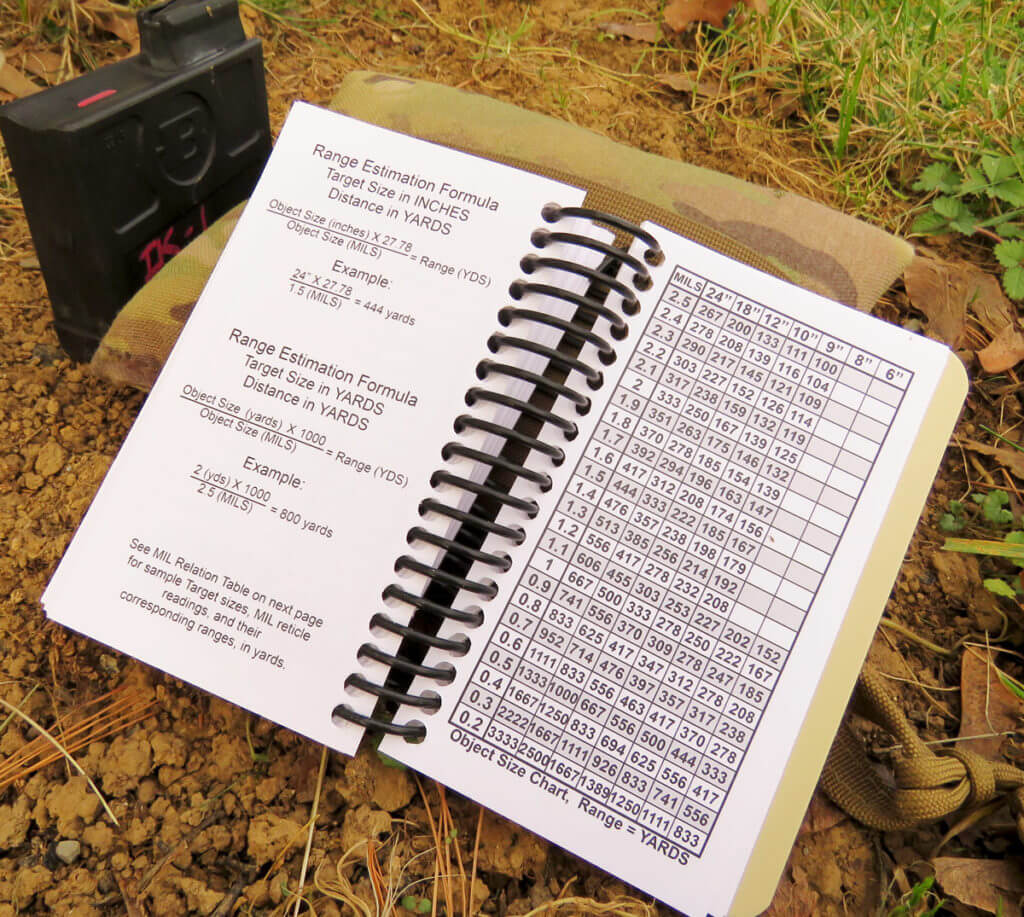 B
Range Estimation Formula
Target Size in INCHES
Distance in YARDS
Object Size (inches) X 27.78
Object Size (MILS)
= Range (YDS)
Example:
24" X 27.78
1.5 (MILS)
= 444 yards
Range Estimation Formula
Target Size in YARDS
Distance in YARDS
Object Size (yards) X 1000
Object Size (MILS)
= Range (YDS)
Example:
2 (yds) X 1000
2.5 (MILS)
= 800 yards
See MIL Relation Table on next page
for sample Target sizes, MIL reticle
readings, and their
corresponding ranges, in yards.
MILS 24" 18" 12" 10" 9" 8" 6"
2.5 267 200 133 111 100
2.4 278 208 139 116 104
2.3 290 217 145 121 109
2.2 303 227 152 126 114
2.1 317 238 159 132 119
2 333 250 167 139 125
1.9 351 263 175 146 132
1.8 370 278 185 154 139
1.7 392 294 196 163 147
1.6 417 312 208 174 156
1.5 444 333 222 185 167
1.4 476 357 238 198 179
1.3 513 385 256 214 192
1.2 556 417 278 232 208
1.1 606 455 303 253 227 202 152
1 667 500 333 278 250 222 167
0.9 741 556 370 309 278 247 185
0.8 833 625 417 347 312 278 208
0.7 952 714 476 397 357 317 238
0.6 1111 833 556 463 417 370 278
0.5 1333 1000 667 556 500 444 333
0.4 1667 1250 833 694 625 556 417
0.3 2222 1667 1111 926 833 741 556
0.2 3333 2500 1667 1389 1250 1111 833
Object Size Chart, Range = YARDS